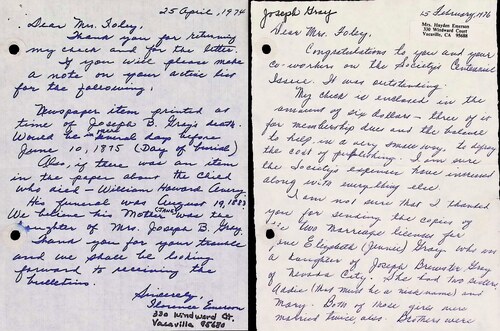 25 April, 1974
Dear Mrs. Foley,
Thank you for returning
my check and for the letter.
If you will please make
a note on your active list
for the following.
Newspaper item printed as
time of Joseph B. Gray's death.
Would be several days before
June 10, 1875 (Day of burial)
Also, if there was an item
in the paper about the child
who died - William Howard Avery.
His funeral was August 19, 1883
We believe his Mother was the
daughter of Mrs. Joseph B. Gray.
Thank you for your trouble
and we shall be looking
forward to receiving the
bulletins.
Sincerely,
Florence Emerson
330 Windward Ct.
Vacaville 95680
Joseph Gray
15 February, 1976
Mrs. Hayden Emerson
330 Windward Court
Vacaville, CA 95688
Dear Mrs. Foley,
Congratulations to you and your
co-workers on the Society's Centennial
Issue. It was outstanding.
My check is enclosed in the
amount of six dollars - three of it
for membership dues and the balance
to help, in a very small way, to defray
the cost of publishing. I am sure
the Society's expenses have increased
along with everything else.
I am not sure that I thanked
you for sending the copies of
the two Marriage licenses for
Jane Elizabeth (Jennie) Gray, who was
a daughter of Joseph Brewster Gray
of Nevada City. She had two sisters,
Addie (that must be a nickname) and
Mary. Both of those girls were
married twice, also. Brothers were